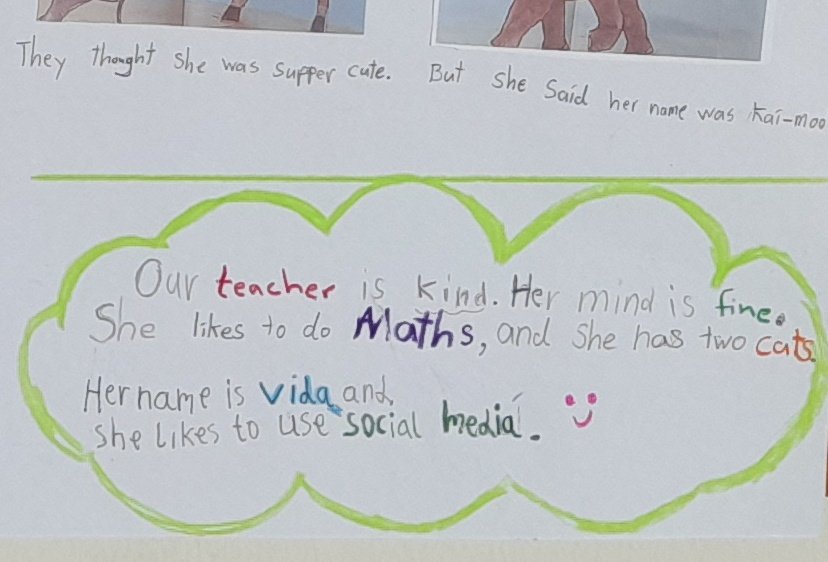 They thought she was supper cute.
But she said her name was Kai-moo
Our teacher is kind. Her mind is fine.
She likes to do Maths, and she has two cats.
Her name is vida and
she likes to use social media.